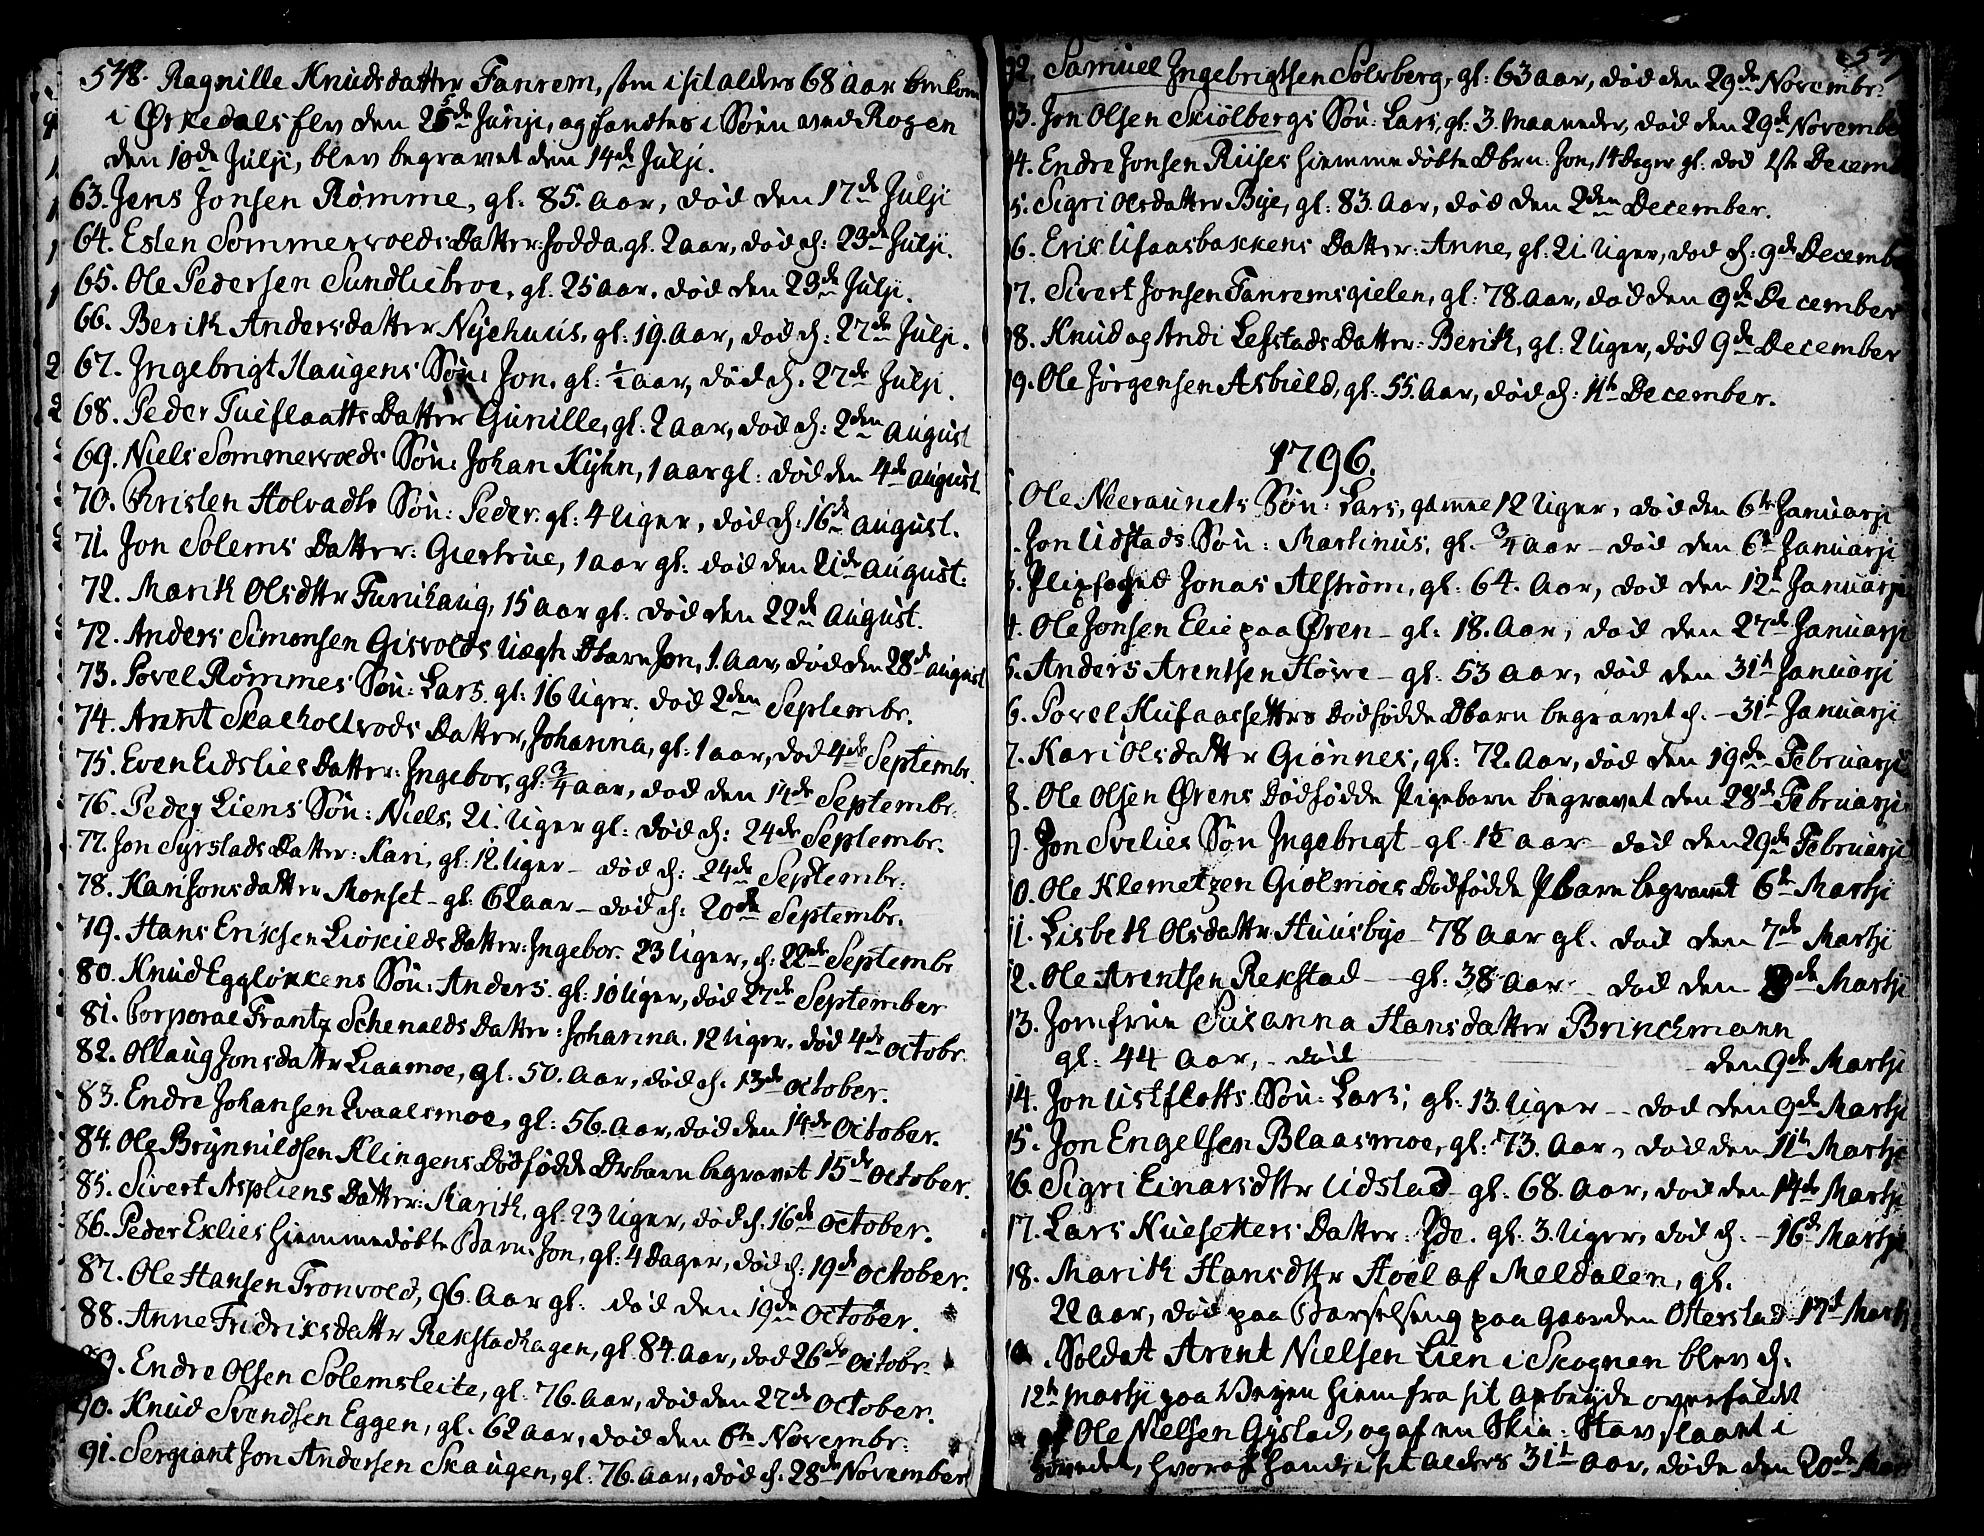 578. Ragnille Knudsdatter Fanrem, som i sit alders 68 Aar omkom
i Ørkedals Elv den 25de Junji, og fandtes i Søen ved Rogen
den 10de Julji, blev begravet den 14de Julji.
63. Jens Jonsen Rømme, gl: 85. Aar, død den 17de Julji
64. Esten Sommervolds Datter: Jodda, gl. 2 aar, død d: 23de Julji.
65. Ole Pedersen Sundliebroe, gl. 25 Aar, død den 23de Julji.
66. Berith Andersdatter Nyehuus, gl: 19. Aar, død d: 27de Julji.
67. Ingebrigt Haugens Søn: Jon, gl: aar, død d. 27de Julji.
68. Peder Tueflaatts Datter Gunille, gl. 2 Aar, død d: 2den August
69. Niels Sommervolds Søn: Johan Kyhn, 1 aar gl: død den 4de August.
70. Christen Holvadts Søn: Peder. gl: 4 Uger, død d: 16de August.
71. Jon Solems Datter: Giertrue, 1 aar gl: død den 21de August.
72. Marith Olsdttr Furuhaug, 15 Aar gl: død den 22de August.
72. Anders Simonsen Gisvolds Uægte Barn Jon, 1. Aar, død den 28de August
73. Povel Rømmes Søn: Lars. gl: 16 Uger. død 2den Septembr.
74. Arent Skalholtvods Datter, Johanna, gl: 1 aar, død 4de Septembr.
75. Even Eidslies Datter: Ingebor, gl: 3/4 Aar, død den 14de Septembr.
76. Peder Liens Søn: Niels, 21. Uger gl: død d: 24de Septembr.
77. Jon Syrstads Datter: Kari, gl: 12. Uger – død d: 24de Septembr:
78. Kari Jonsdatter Monset – gl: 62 aar – død d: 20de Septembr.
79. Hans Eriksen Liøkilds Datter: Ingebor. 23 Uger, d: 22de Septembr
80. Knud Eggløkkens Søn: Anders. gl: 10 Uger, død 27de September
81. Corporal Frantz Schenalds Datter: Johanna, 12 Uger. død 4de Octobr.
82. Ollaug Jonsdattr Liaamoe, gl. 50. Aar, død d. 13de October.
83. Endre Johansen Qvaalsmoe, gl: 56. Aar, død den 14de October.
84. Ole Brynnildsen Klingens Dødfødde Drbarn begravet 15de October.
85. Sivert Aspliens Datter: Marith, gl: 23 Uger, død d. 16de October.
86. Peder Exlies hiemmedøbte Barn: Jon, gl: 4 Dager, død d: 19de October.
87. Ole Hansen Tronvold, 96. Aar gl: død den 19de October.
88. Anne Fridriksdattr Rekstadhagen, gl. 84. Aar, død 26de Octobr.
89. Endre Olsen Solemsleite, gl: 76. Aar, død den 27de October.
90. Knud Svendsen Eggen, gl. 62 Aar, død den 6te Novembr:
91. Sergiant Jon Andersen Skaugen, gl: 76. Aar, død d. 28de November
92. Samuel Ingebrigtsen Solsberg, gl: 63 Aar, død den 29de Novembr.
93. Jon Olsen Skiølbergs Søn: Lars, gl: 3. Maaneder, død den 29de November
94. Endre Jonsen Riises hiemme døbte Dbrn: Jon, 14 Dager gl. død 1ste Decemb
5. Sigri Olsdatter Bye, gl: 83. Aar, død den 2den December.
6. Erik Ufaasbakkens Datter: Anne, gl: 21 Uger, død d: 9de Decemb
97. Sivert Jonsen Fanremsgielen, gl: 78. Aar, død den 9de December
98. Knud og Andi Lefstads Datter: Berith, gl: 2 Uger, død 9de December
99. Ole Jørgensen Asbiels, gl. 55. Aar, død d: 11te December.
1796.
Ole Neeraunets Søn: Lars, gamme 12 Uger, død den 6te Januarji
Jon Udstads Søn: Martinus, gl. 3/4 Aar – død den 6te Januarji
3. Jonas Alstrøm, gl: 64. Aar, død den 12te Januarji
4. Ole Jonsen Elie paa Øren – gl: 18. Aar, død den 27de Januarji
5. Anders Arentsen Howe – gl: 53 Aar, død den 31te Januarji
6. Povel Hufaassetters Dødfødde Dbarn begravet d. – 31te Januarji
7. Kari Olsdattr Giønnes, gl: 72. Aar, død den 19de Februarji
8. Ole Olsen Ørens Dødfødde Pigebarn begravet den 28de Februarji
9. Jon Svelies Søn Ingebrigt gl. 1½ aar – død den 29de Februarji
10. Ole Klemetzen Giølmoes Dødfødde Pbarn begravet 6te Martji
11. Lisbeth Olsdattr Huusbye – 78 Aar gl. død den 7de Martji
12. Ole Arentsen Rekstad – gl: 38 Aar – død den 8de Martji
13. Jomfrue Susanna Hansdatter Brinchmann
gl: 44 Aar, – død den 9de Martji
14. Jon Ustfletts Søn: Lars, gl: 13. Uger – død den 9de Martji
15. Jon Engelsen Blaasmoe, gl: 73. Aar, død den 11te Martji
16. Sigri Einarsdttr Udstad gl: 68. Aar, død den 14de Martji
17. Lars Kuesetters Datter: Ide. gl: 3. Uger, død d. – 16de Martji
18. Marith Hansdttr Hoel af Meldalen, gl.
22 Aar, død paa Barselseng paa Gaarden Otterstad 17de Martji
. Soldat Arent Nielsen Lien i Skognen blev d.
12te Martji paa Veyen hiem fra sit Arbeyde overfaldt
af Ole Nielsen Gystad, og af en Skie: Stav slaaet i
hovedet, hvoraf hand i sit Alders 31te Aar, døde den 20de Mart